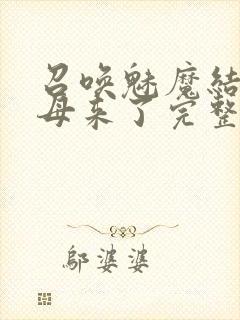 召唤魅魔结
母来了完整
邬婆婆